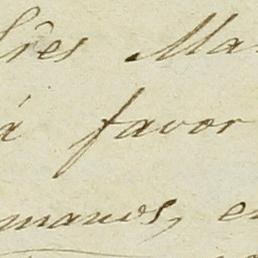 Sres Ma
á favor
manos, e